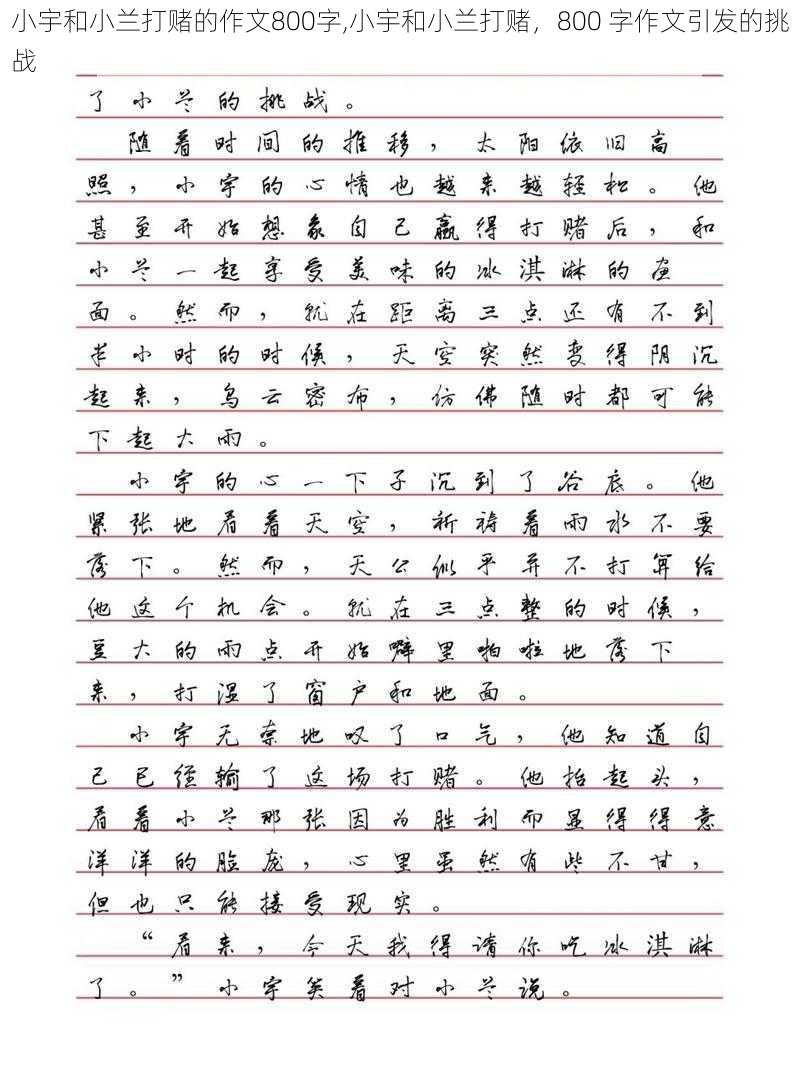 小宇和小兰打赌的作文800字,小宇和小兰打赌，800 字作文引发的挑
战
了小兰的挑战。
随着时间的推移，太阳依旧高
照，小宇的心情也越来越轻松。他
甚至开始想象自己赢得打赌后，和
小兰一起享受美味的冰淇淋的画
面。然而，就在距离三点还有不到
半小时的时候，天空突然变得阴沉
起来，乌云密布，仿佛随时都可能
下起大雨。
小宇的心一下子沉到了谷底。他
紧张地看着天空，祈祷着雨水不要
落下。然而，天公似乎并不打算给
他这个机会。就在三点整的时候，
豆大的雨点开始噼里啪啦地落下
来，打湿了窗户和地面。
小宇无奈地叹了口气，他知道自
己已经输了这场打赌。他抬起头，
看着小兰那张因为胜利而显得得意
洋洋的脸庞，心里虽然有些不甘，
但也只能接受现实。
“看来，今天我得请你吃冰淇淋
了。”小宇笑着对小兰说。